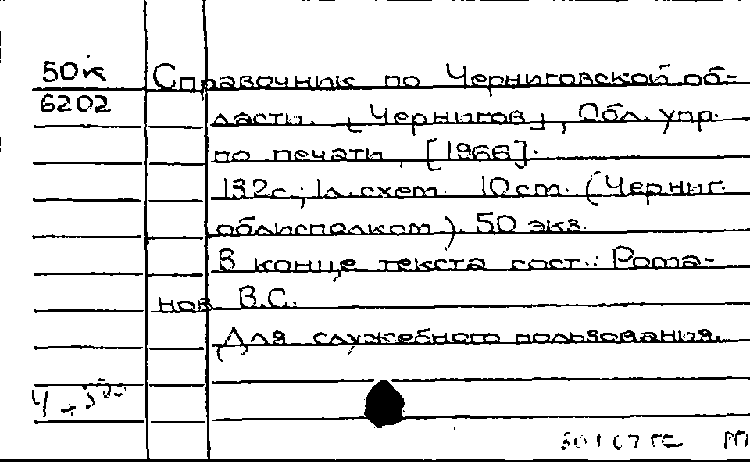 50к Справочник по Черниговской об-
6202 ласти. [Чернигов], Обл. упр.
по печати, [1966].
132с.; 1л.схем. 10см. (Черниг.
облисполком). 50 экз.
В конце текста сост.: Рома-
нов В.С.
Для служебного пользования.